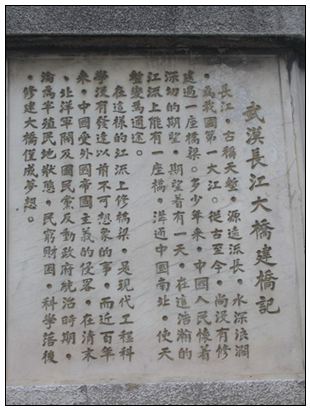 武漢長江大橋建橋記
長江，古稱天塹，源遠流長，水深浪濶
，為我國第一大江。從古至今，尚没有修
建過一座橋梁。多少年来，中國人民懷着
深切的期望，期望着有一天，在這浩瀚的
江流上能有一座橋，溝通中國南北，使天
塹變為通途。
在這樣的江流上修橋梁，是現代工程科
學没有發達以前不可想象的事，而近百年
来，中國受外國帝國主義的侵畧，在清末
、北洋軍閥及國民黨反動政府統治時期，
淪為半殖民地狀態，民窮財困，科學落後
，修建大橋僅成夢想。